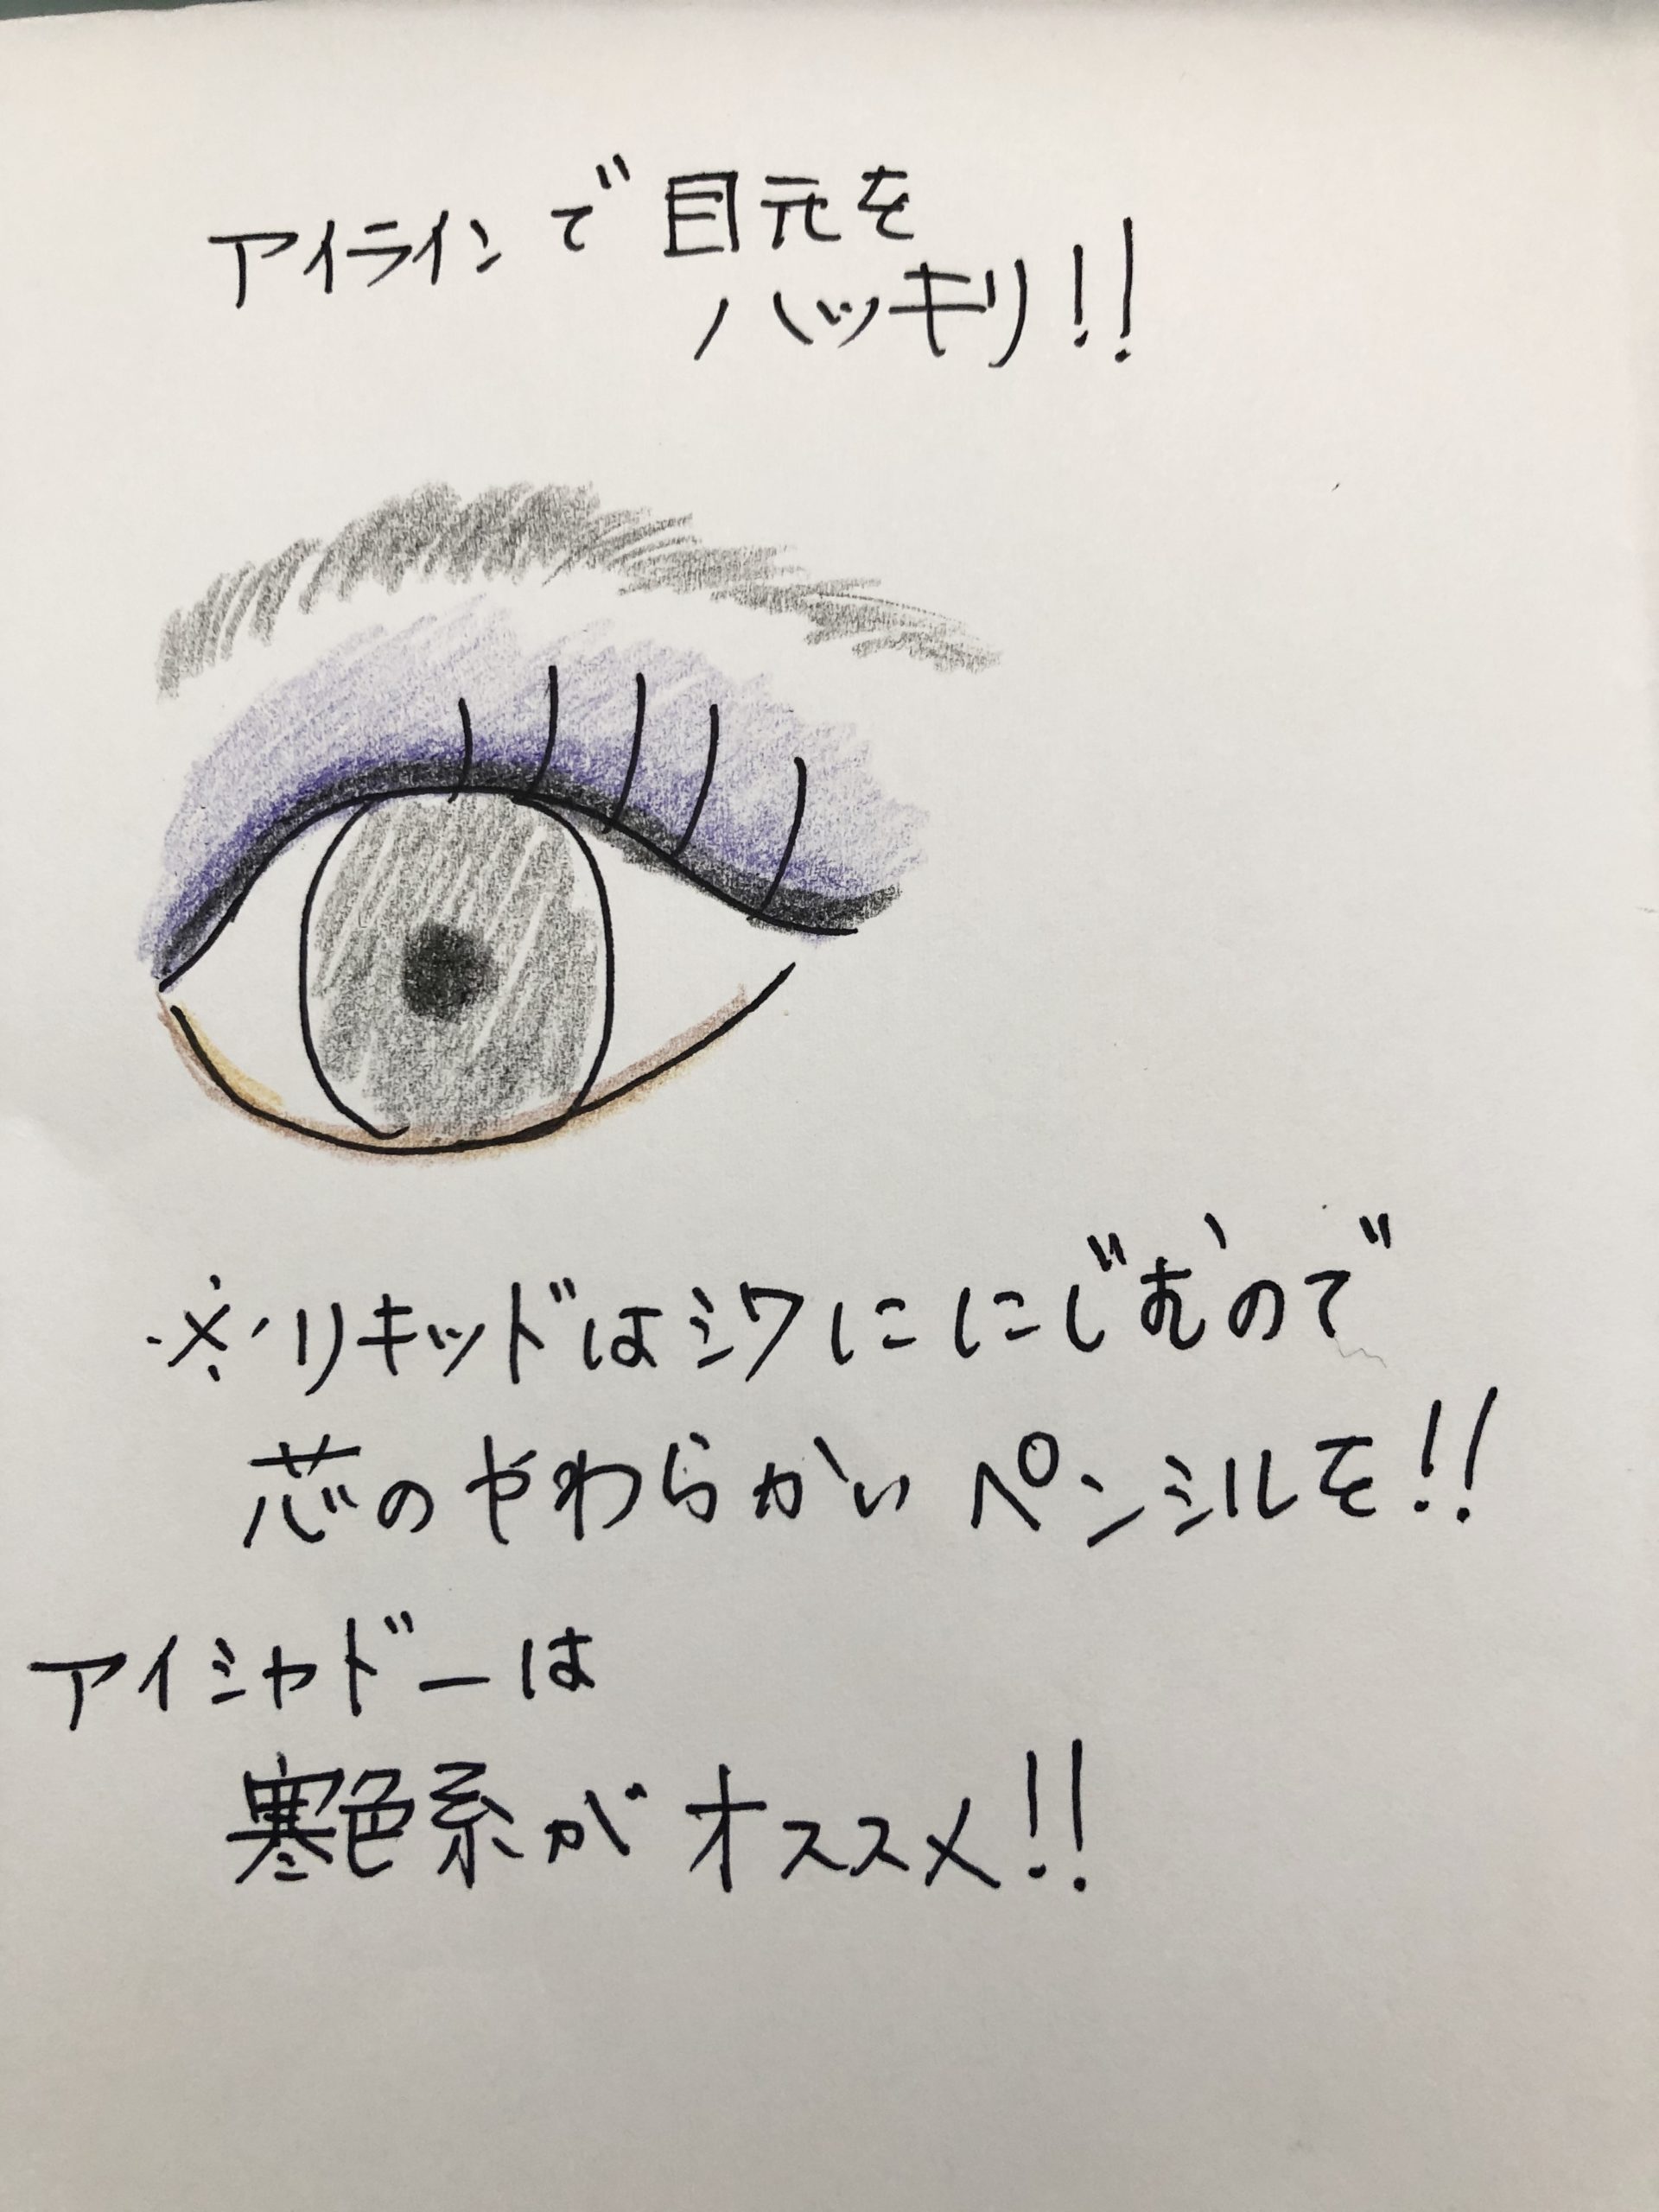 アイラインで目元を
ハッキリ!!
※リキッドはシワににじむので
芯のやわらかいペンシルを!!
アイシャドーは
寒色系がオススメ!!